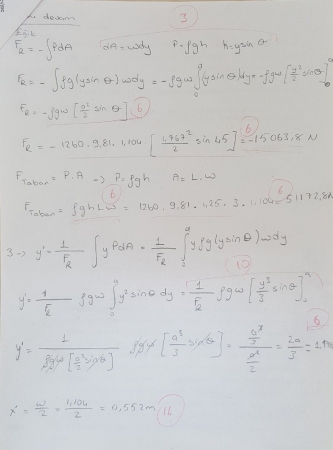 devam
3
F_R = -∫PdA dA = wdy P = ρgh h = y sin θ
F_R = -∫ρg(y sin θ) wdy = -ρgw ∫₀ᵃ (y sin θ) dy = -ρgw [y²/2 sin θ]₀ᵃ
F_R = -ρgw [a²/2 sin θ] 6
F_R = -1260 . 9,81 . 1,104 [1,767²/2 sin 45] = -15063,8 N 6
F_Taban = P.A => P = ρgh A = L.W
F_Taban = ρghLW = 1260 . 9,81 . 1,25 . 3 . 1,104 = 51172,8N 6 6
3 -> y' = 1/F_R ∫ y P dA = 1/F_R ∫ᵃ y ρg (y sin θ) w dy
y' = 1/F_R ρgw ∫₀ᵃ y² sin θ dy = 1/F_R ρgw [y³/3 sin θ]ᵃ 10
y' = 1/(ρgw [a²/2 sin θ]) ρgw [a³/3 sin θ] = (a³/3)/(a²/2) = 2a/3 = 6
x' = w/2 = 1,104/2 = 0,552m 16